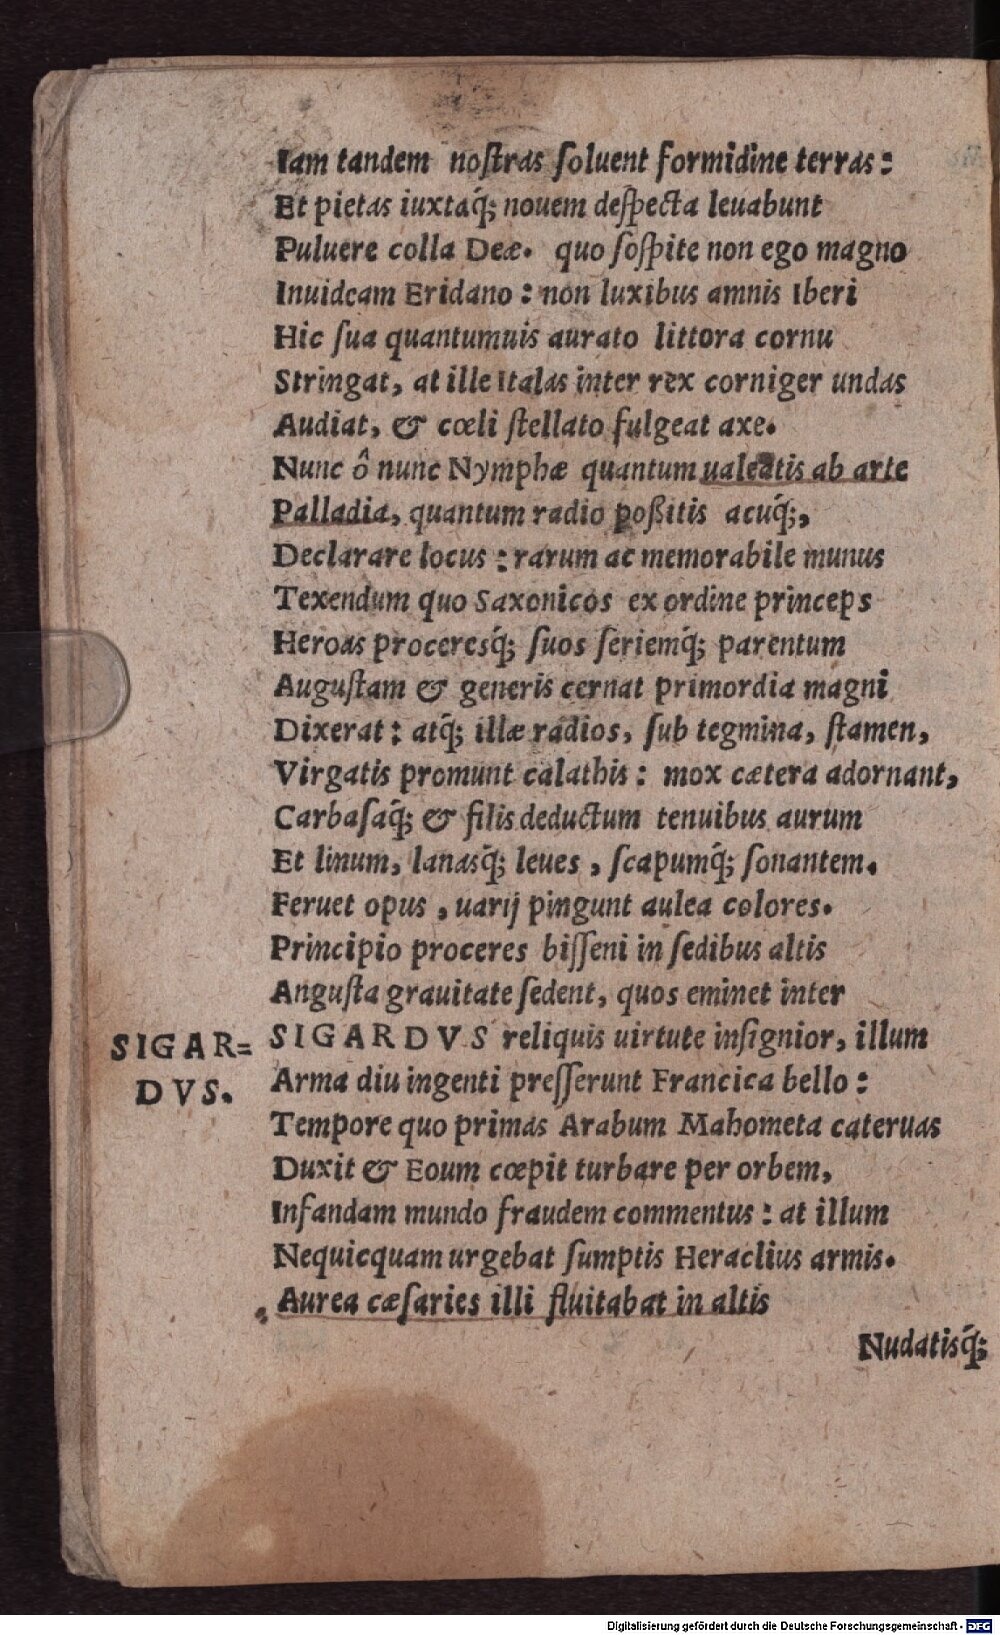 Iam tandem noſtras ſoluent formidine terras:
Et pietas iuxtaq́; nouem deſpecta leuabunt
Puluere colla Deæ. quo ſoſpite non ego magno
Inuideam Eridano: non luxibus amnis Iberi
Hic ſua quantumuis aurato littora cornu
Stringat, at ille Italas inter rex corniger undas
Audiat, & cœli ſtellato fulgeat axe.
Nunc ô nunc Nymphæ quantum ualeatis ab arte
Palladia, quantum radio poßitis acuq́;,
Declarare locus: rarum ac memorabile munus
Texendum quo Saxonicos ex ordine princeps
Heroas proceresq́; ſuos ſeriemq́; parentum
Auguſtam & generis cernat primordia magni
Dixerat: atq́; illæ radios, ſub tegmina, ſtamen,
Virgatis promunt calathis: mox cætera adornant,
Carbaſaq́; & filis deductum tenuibus aurum
Et linum, lanasq́; leues, ſcapumq́; ſonantem.
Feruet opus, uarij pingunt aulea colores.
Principio proceres biſſeni in ſedibus altis
Anguſta grauitate ſedent, quos eminet inter
SIGAR=
DVS.
SIGARDVS reliquis uirtute inſignior, illum
Arma diu ingenti preſſerunt Francica bello:
Tempore quo primas Arabum Mahometa cateruas
Duxit & Eoum cœpit turbare per orbem,
Infandam mundo fraudem commentus: at illum
Nequicquam urgebat ſumptis Heraclius armis.
Aurea cæſaries illi fluitabat in altis
Nudatisq́;
Digitalisierung gefördert durch die Deutsche Forschungsgemeinschaft - DFG